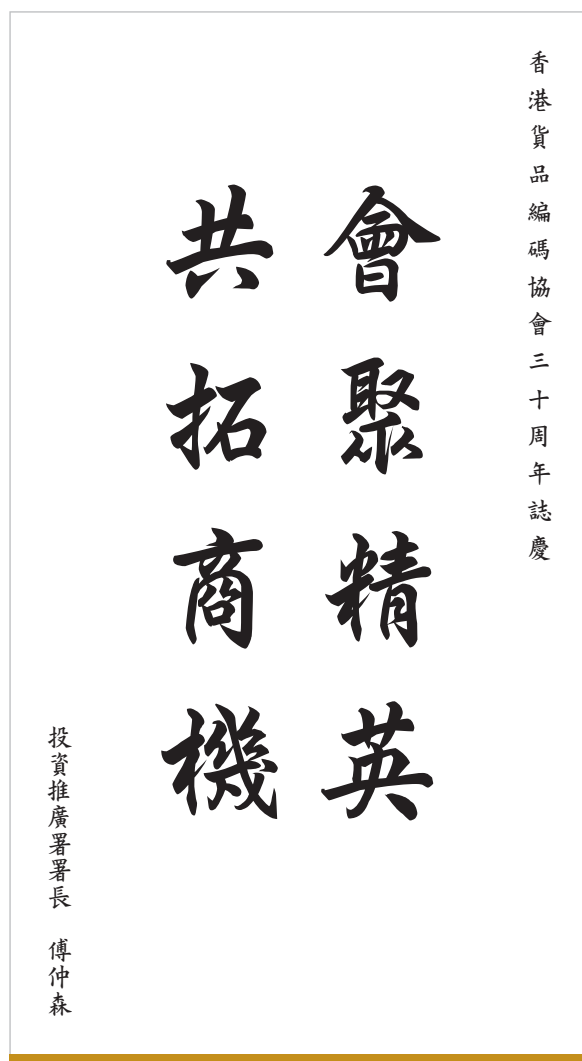 香港貨品編碼協會三十周年誌慶
會聚精英
共拓商機
投資推廣署署長 傅仲森